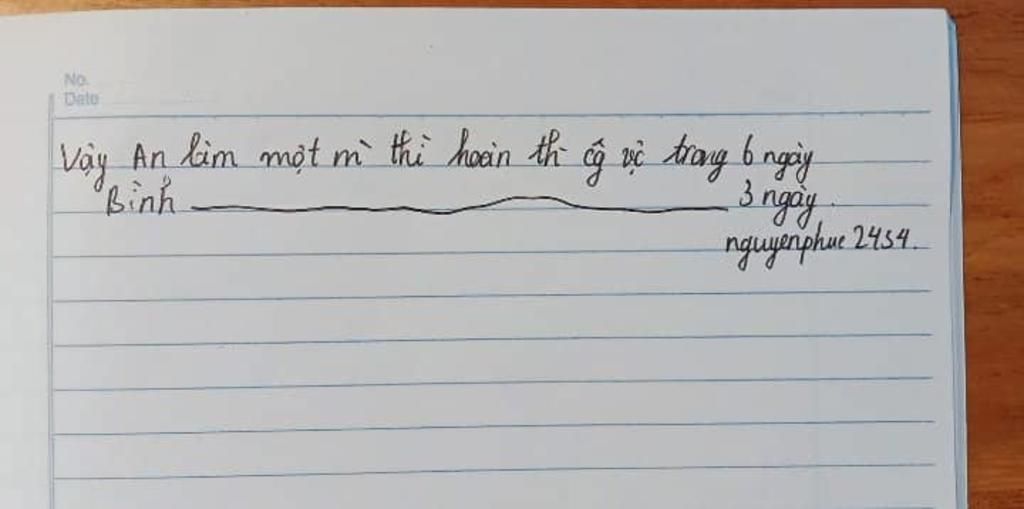 No.
Date
Vậy An làm một mì thì hoàn th cg vc trong 6 ngày
Bình 3 ngày.
nguyenphuc 2454.